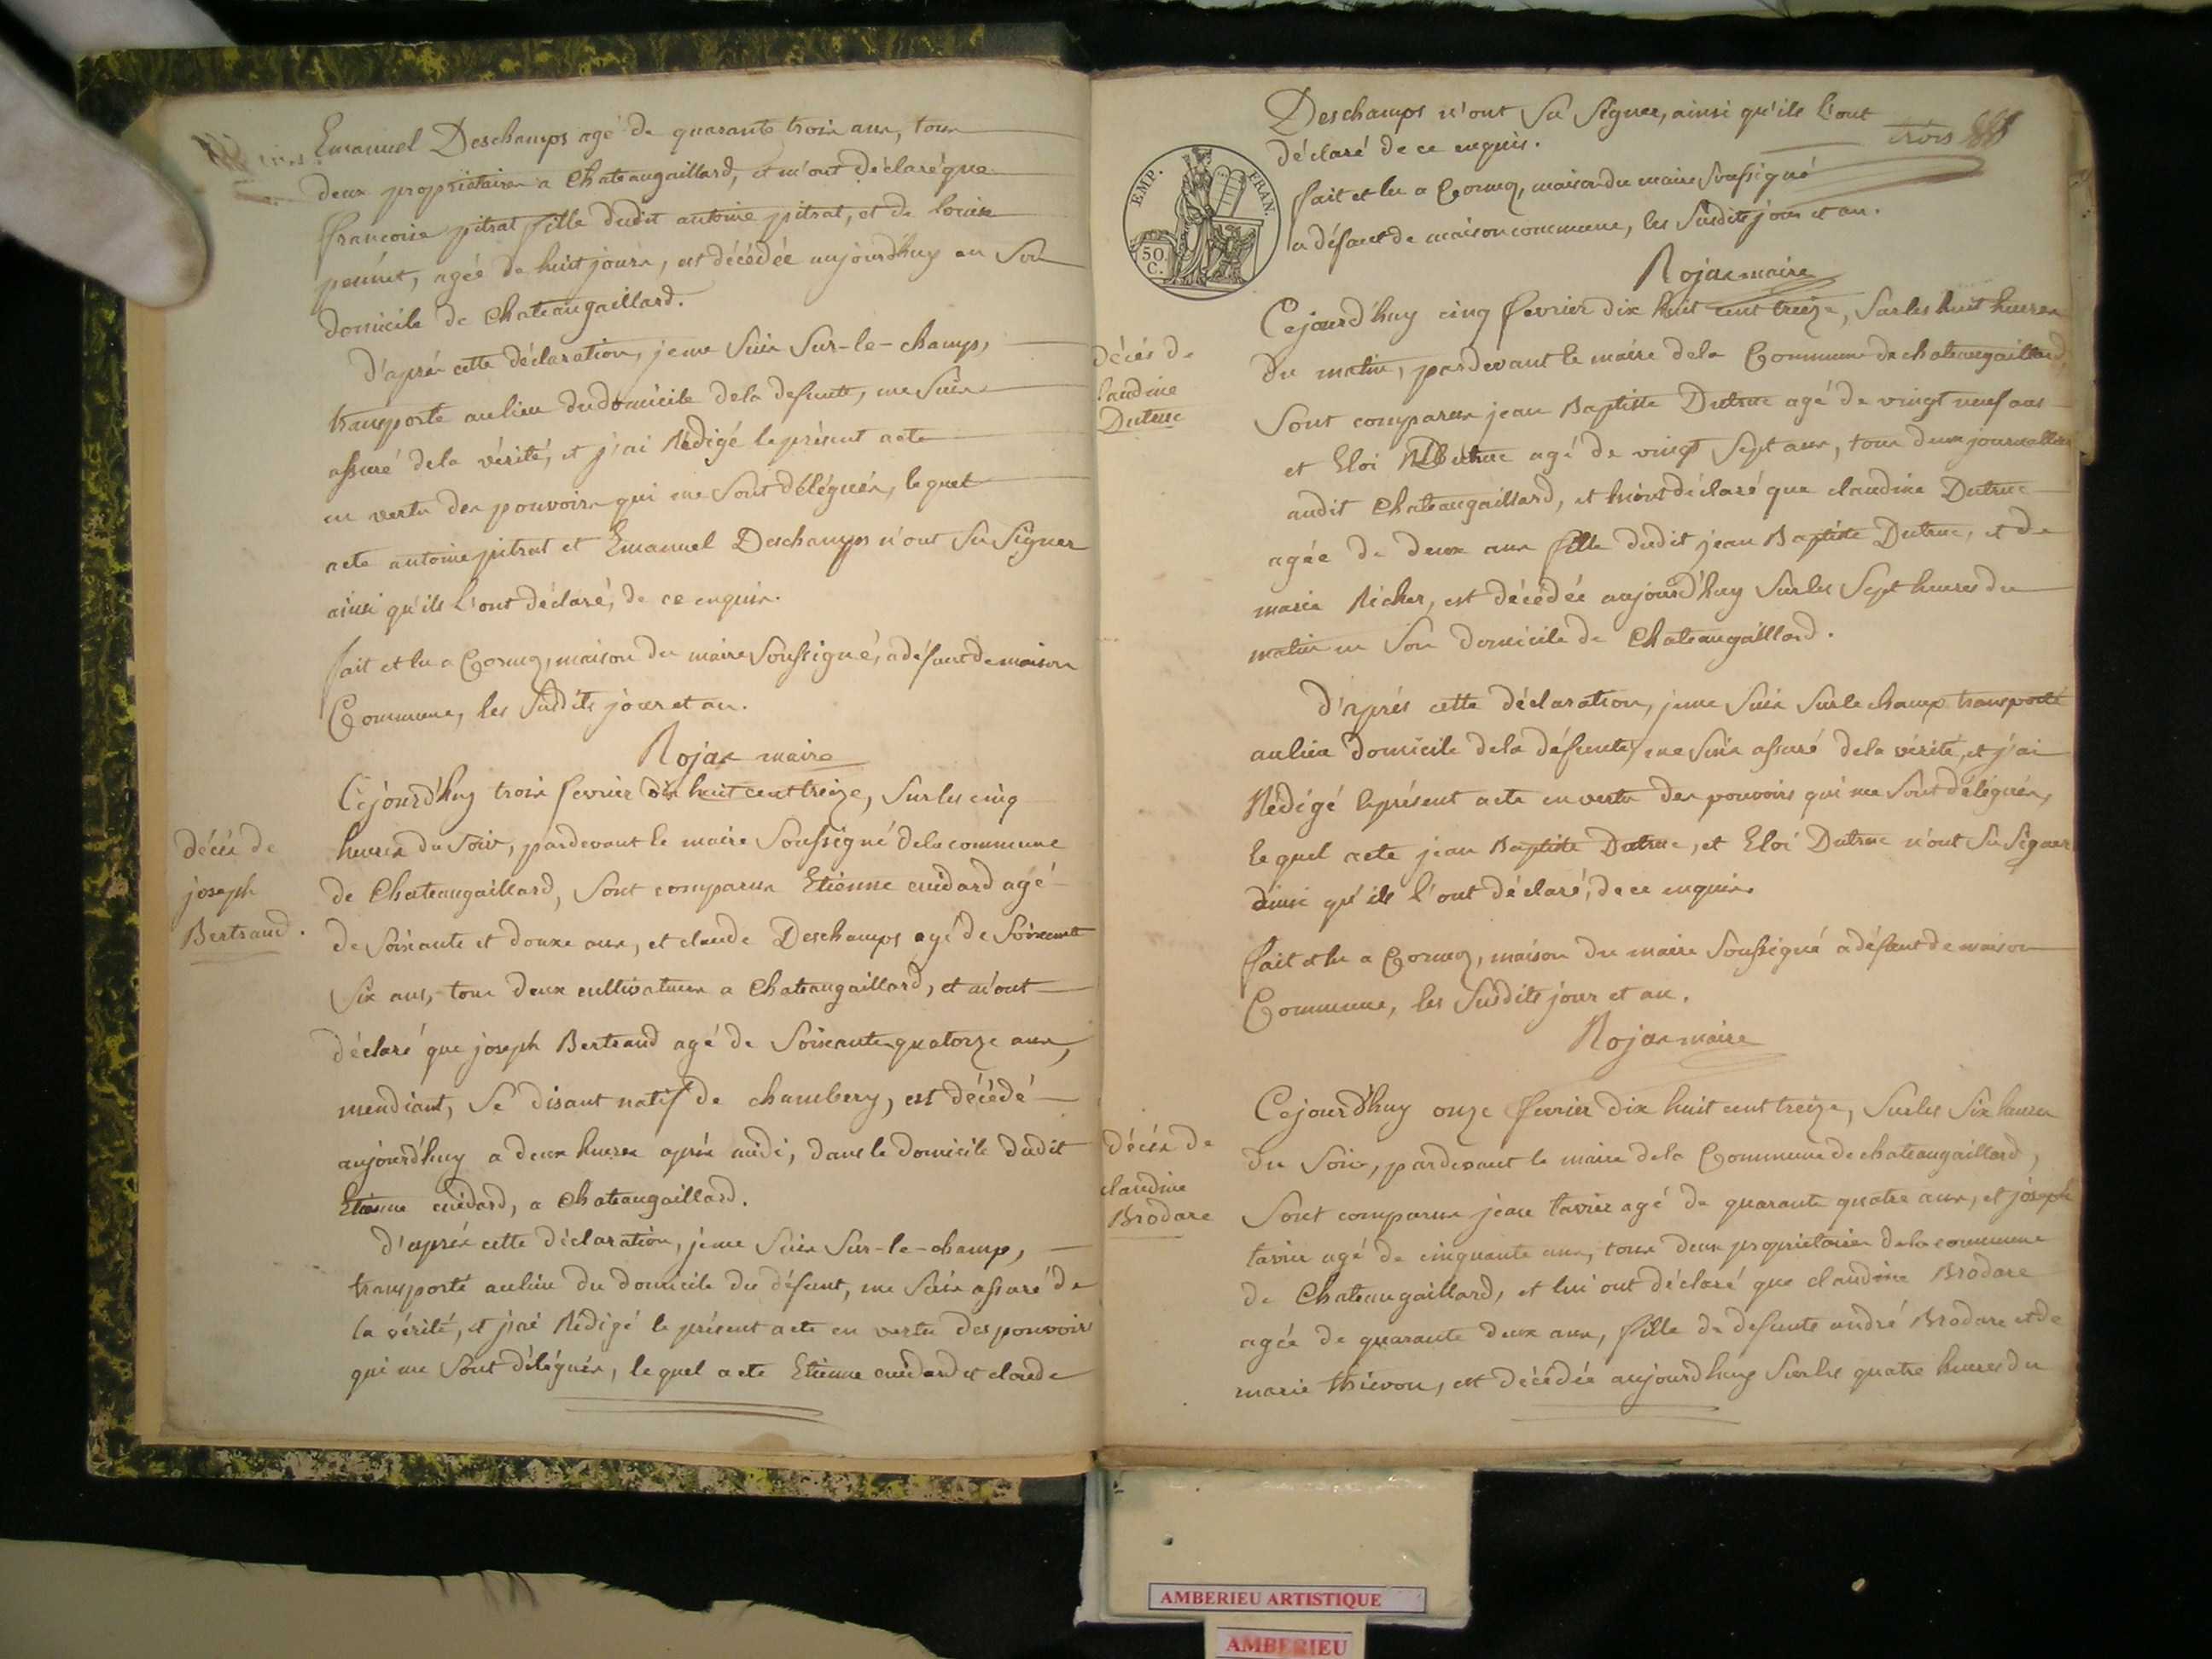 Emanuel Deschamps agé de quarante trois ans, tous
deux propriétaires a Chateaugaillard, et m'ont déclaré que
francoise pitrat fille dudit antoine pitrat, et de louise
agée de huit jours, est décédée aujourd'huy en Son
domicile de Chateaugaillard.
d'aprés cette déclaration, je me Suis Sur-le-champs,
transporté au lieu du domicile de la defunte, me Suis
assuré de la vérité, et j'ai Rédigé le présent acte
en vertu des pouvoirs qui me Sont délégués, le quel
acte antoine pitrat et Emanuel Deschamps n'ont Su Signer
ainsi qu'ils l'ont déclaré, de ce enquis.
fait et lu a Cormoz, maison du maire Soussigné, a défaut de maison
Commune, les Susdits jour et an.
Rojas maire
décés de
joseph
Bertrand.
Cejourd'huy trois fevrier dix huit cent treize, Sur les cinq
heures du Soir, pardevant le maire Soussigné de la commune
de Chateaugaillard, Sont comparus Etienne cuidard agé
de Soixante et douze ans, et claude Deschamps agé de Soixante
Six ans, tous deux cultivateurs a Chateaugaillard, et m'ont
déclaré que joseph Bertrand agé de Soixante quatorze ans,
mendiant, Se disant natif de chambery, est décédé
aujourd'huy a deux heures aprés midi, dans le domicile dudit
Etienne cuidard, a Chateaugaillard.
d'aprés cette déclaration, je me Suis Sur-le-champ,
transporté au lieu du domicile du défunt, me Suis assuré de
la vérité, et j'ai Rédigé le présent acte en vertu des pouvoirs
qui me Sont délégués, le quel acte Etienne cuidard et claude
trois
Deschamps n'ont Su Signer, ainsi qu'ils l'ont
déclaré de ce enquis.
fait et lu a Cormoz, maison du maire Soussigné
a défaut de maison commune, les Susdits jour et an.
Rojas maire
EMP. FRAN.
50
C.
décés de
Claudine
Dutruc
Cejourd'huy cinq fevrier dix huit cent treize, Sur les huit heures
du matin, pardevant le maire de la Commune de chateaugaillard,
Sont comparus jean Baptiste Dutruc agé de vingt neuf ans
et Eloi Dutruc agé de vingt Sept ans, tous deux journalliers
audit Chateaugaillard, et lui ont déclaré que claudine Dutruc
agée de deux ans fille dudit jean Baptiste Dutruc, et de
marie Richer, est décédée aujourd'huy Sur les Sept heures du
matin en Son domicile de Chateaugaillard.
d'aprés cette déclaration, je me Suis Sur le champ transporté
au lieu domicile de la défunte, me Suis assuré de la vérité, et j'ai
Rédigé le présent acte en vertu des pouvoirs qui me Sont délégués,
le quel acte jean Baptiste Dutruc, et Eloi Dutruc n'ont Su Signer
ainsi qu'ils l'ont déclaré, de ce enquis.
fait et lu a Cormoz, maison du maire Soussigné a défaut de maison
Commune, les Susdits jour et an.
Rojas maire
décés de
claudine
Brodare
Cejourd'huy onze fevrier dix huit cent treize, Sur les Six heures
du Soir, pardevant le maire de la Commune de chateaugaillard,
Sont comparus jean tavier agé de quarante quatre ans, et joseph
tavier agé de cinquante ans, tous deux propriétaires de la commune
de Chateaugaillard, et lui ont déclaré que claudine Brodare
agée de quarante deux ans, fille de defunts andré Brodare et de
marie thievon, est décédée aujourd'huy Sur les quatre heures du
AMBERIEU ARTISTIQUE
AMBERIEU